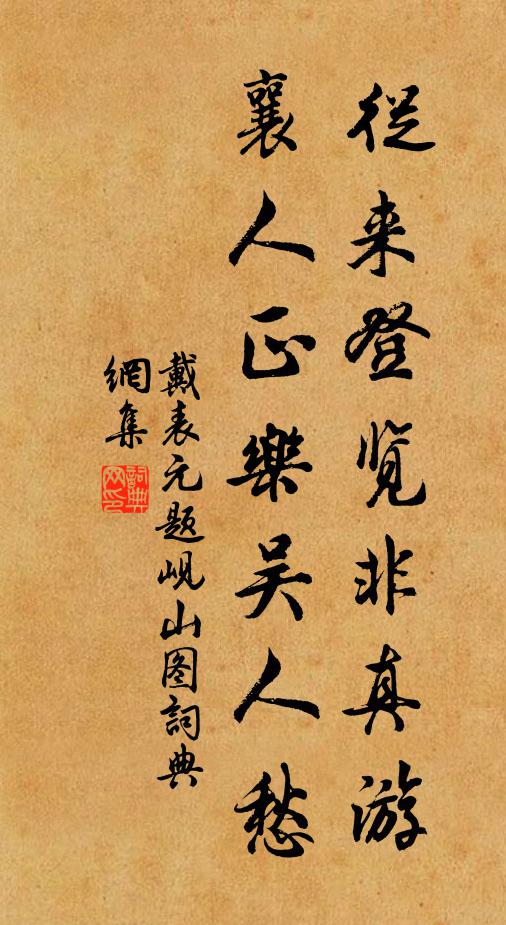 從来登览非真游
襄人正樂吴人愁
戴表元题岘山图詞典
網集
詞典
网印